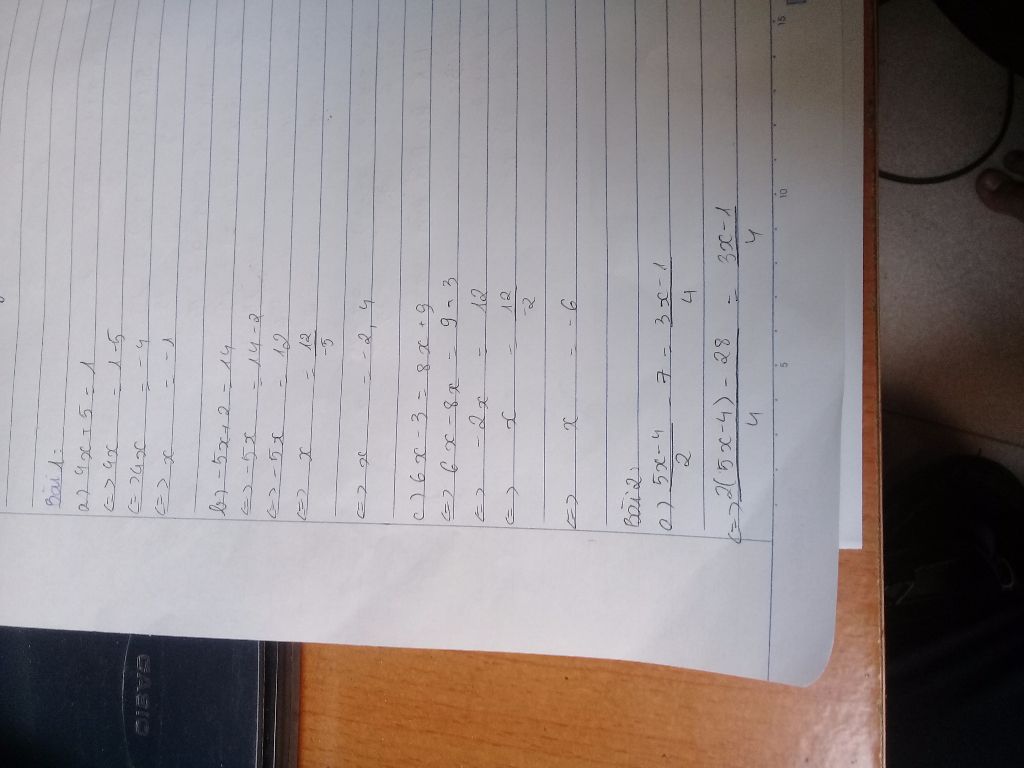 Bài 1:
a) 4x + 5 = 1
<=> 4x = 1-5
<=> 4x = -4
<=> x = -1
b) -5x+2 = 14
<=> -5x = 14-2
<=> -5x = 12
<=> x = 12/-5
<=> x = -2,4
c) 6x - 3 = 8x + 9
<=> 6x - 8x = 9+3
<=> -2x = 12
<=> x = 12/-2
<=> x = -6
Bài 2:
a) 5x-4/2 - 7 = 3x-1/4
<=> 2(5x-4) - 28/4 = 3x-1/4
5
10
15